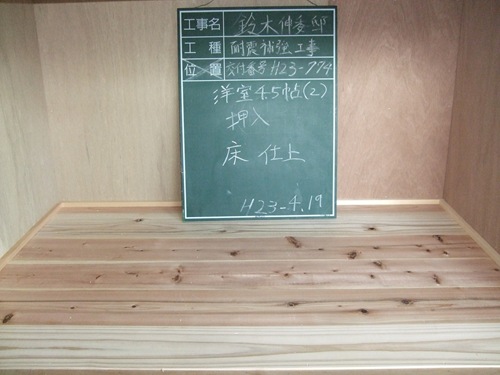 工事名 鈴木伸委邸
工種 耐震補強工事
位置 交付番号H23-774
洋室4.5帖(2)
押入
床 仕上
H23-4.19